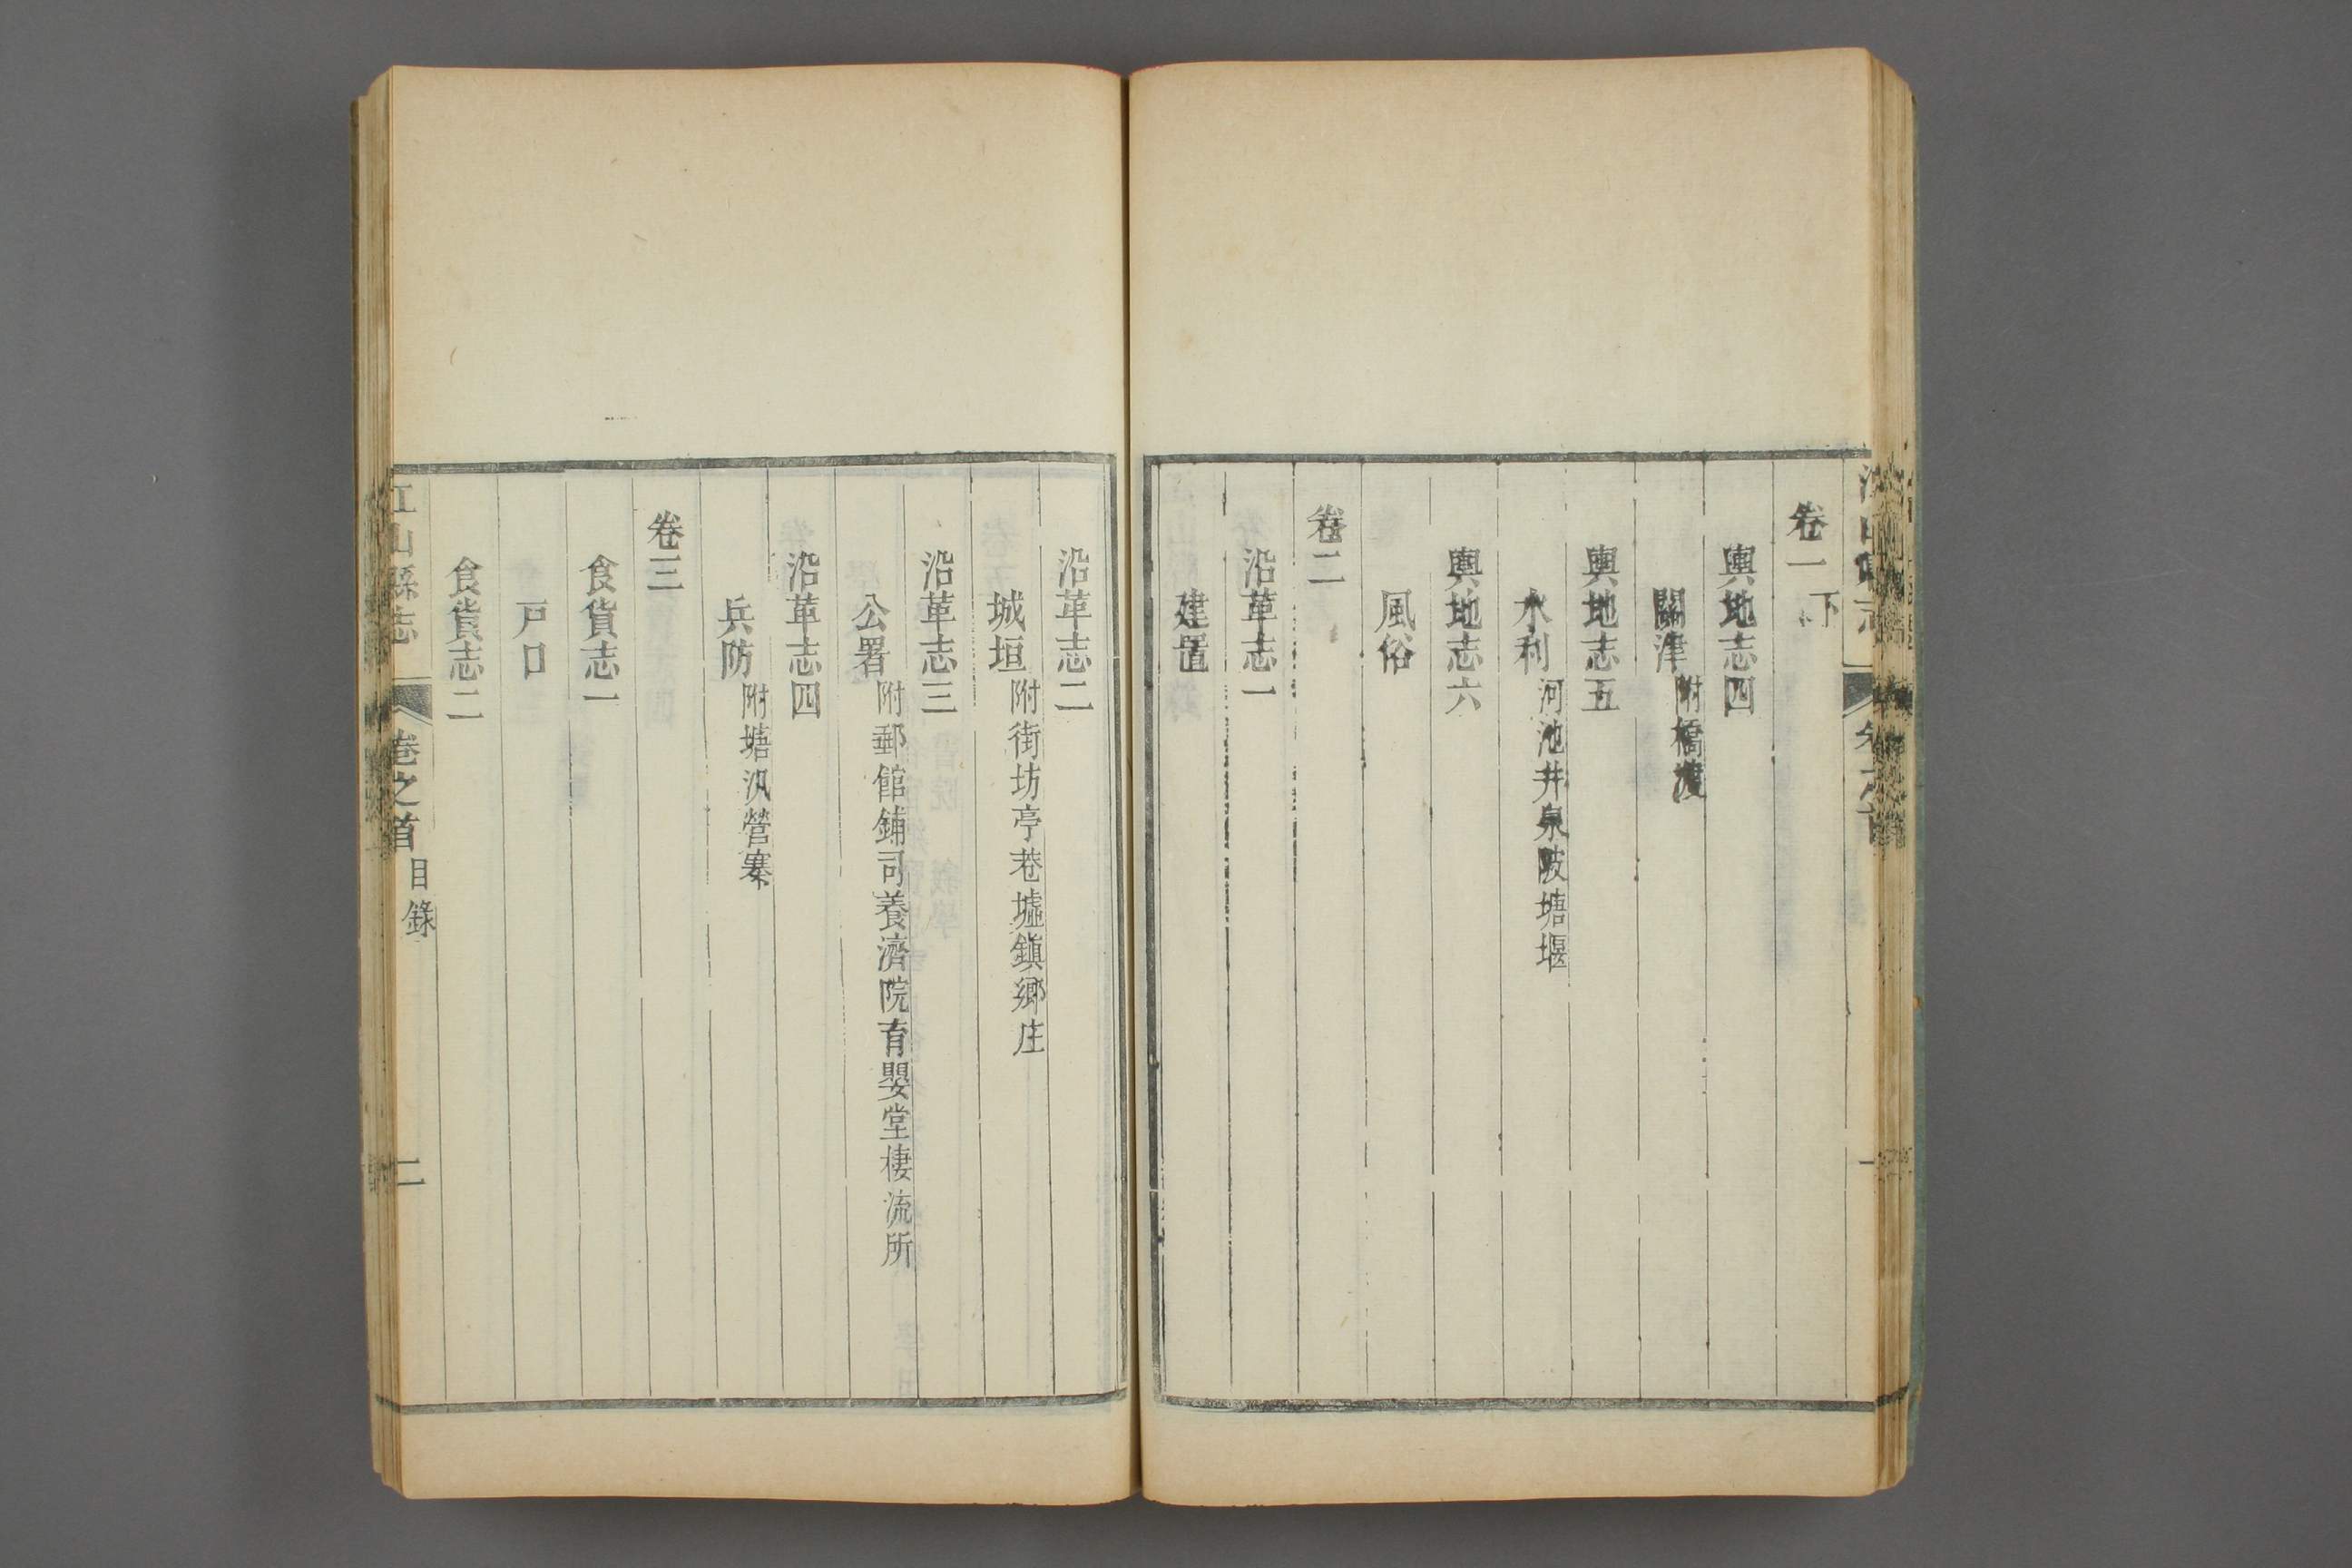 卷一下
輿地志四
關津附橋渡
輿地志五
水利河池井泉陂塘堰
輿地志六
風俗
卷二
沿革志一
建置
沿革志二
城垣附街坊亭巷墟鎭鄉庄
沿革志三
公署附郵館鋪司養濟院育嬰堂棲流所
沿革志四
兵防附塘汛營寨
卷三
食貨志一
戸口
食貨志二
江山縣志 卷之首 目錄 二